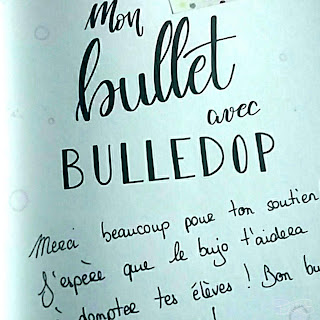 Mon
bullet
avec
BULLEDOP
Merci beaucoup pour ton soutien
J'espère que le bujo t'aidera
à dompter tes élèves ! Bon bu
!